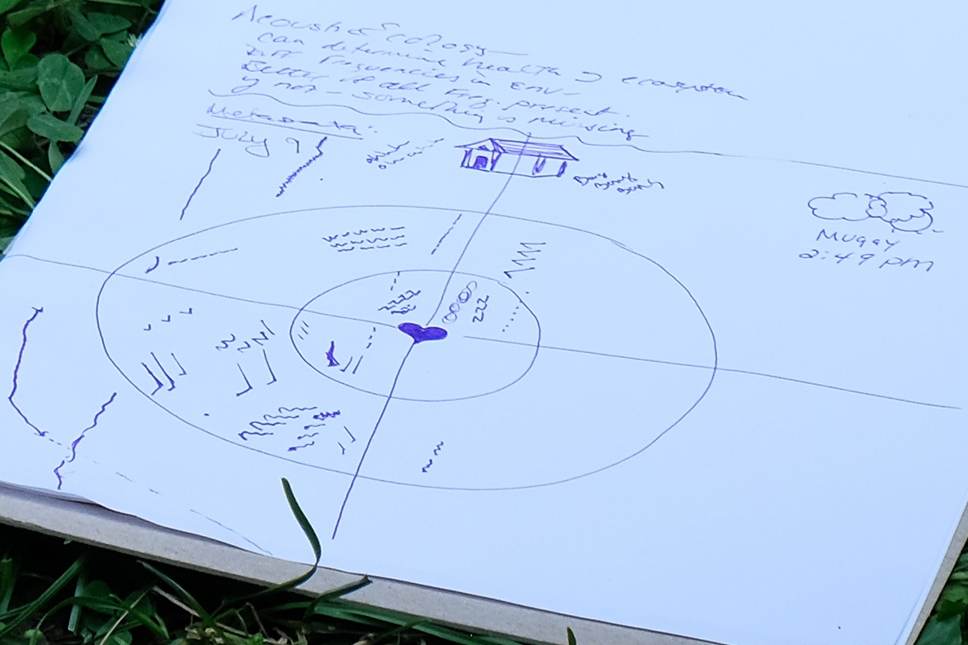 Acoustic Ecology
can determine health of ecosystem
Diff frequencies in env.
Better if all freq. present.
If not - something is missing
Metadata:
July 9
Muggy
2:49 pm
zzz